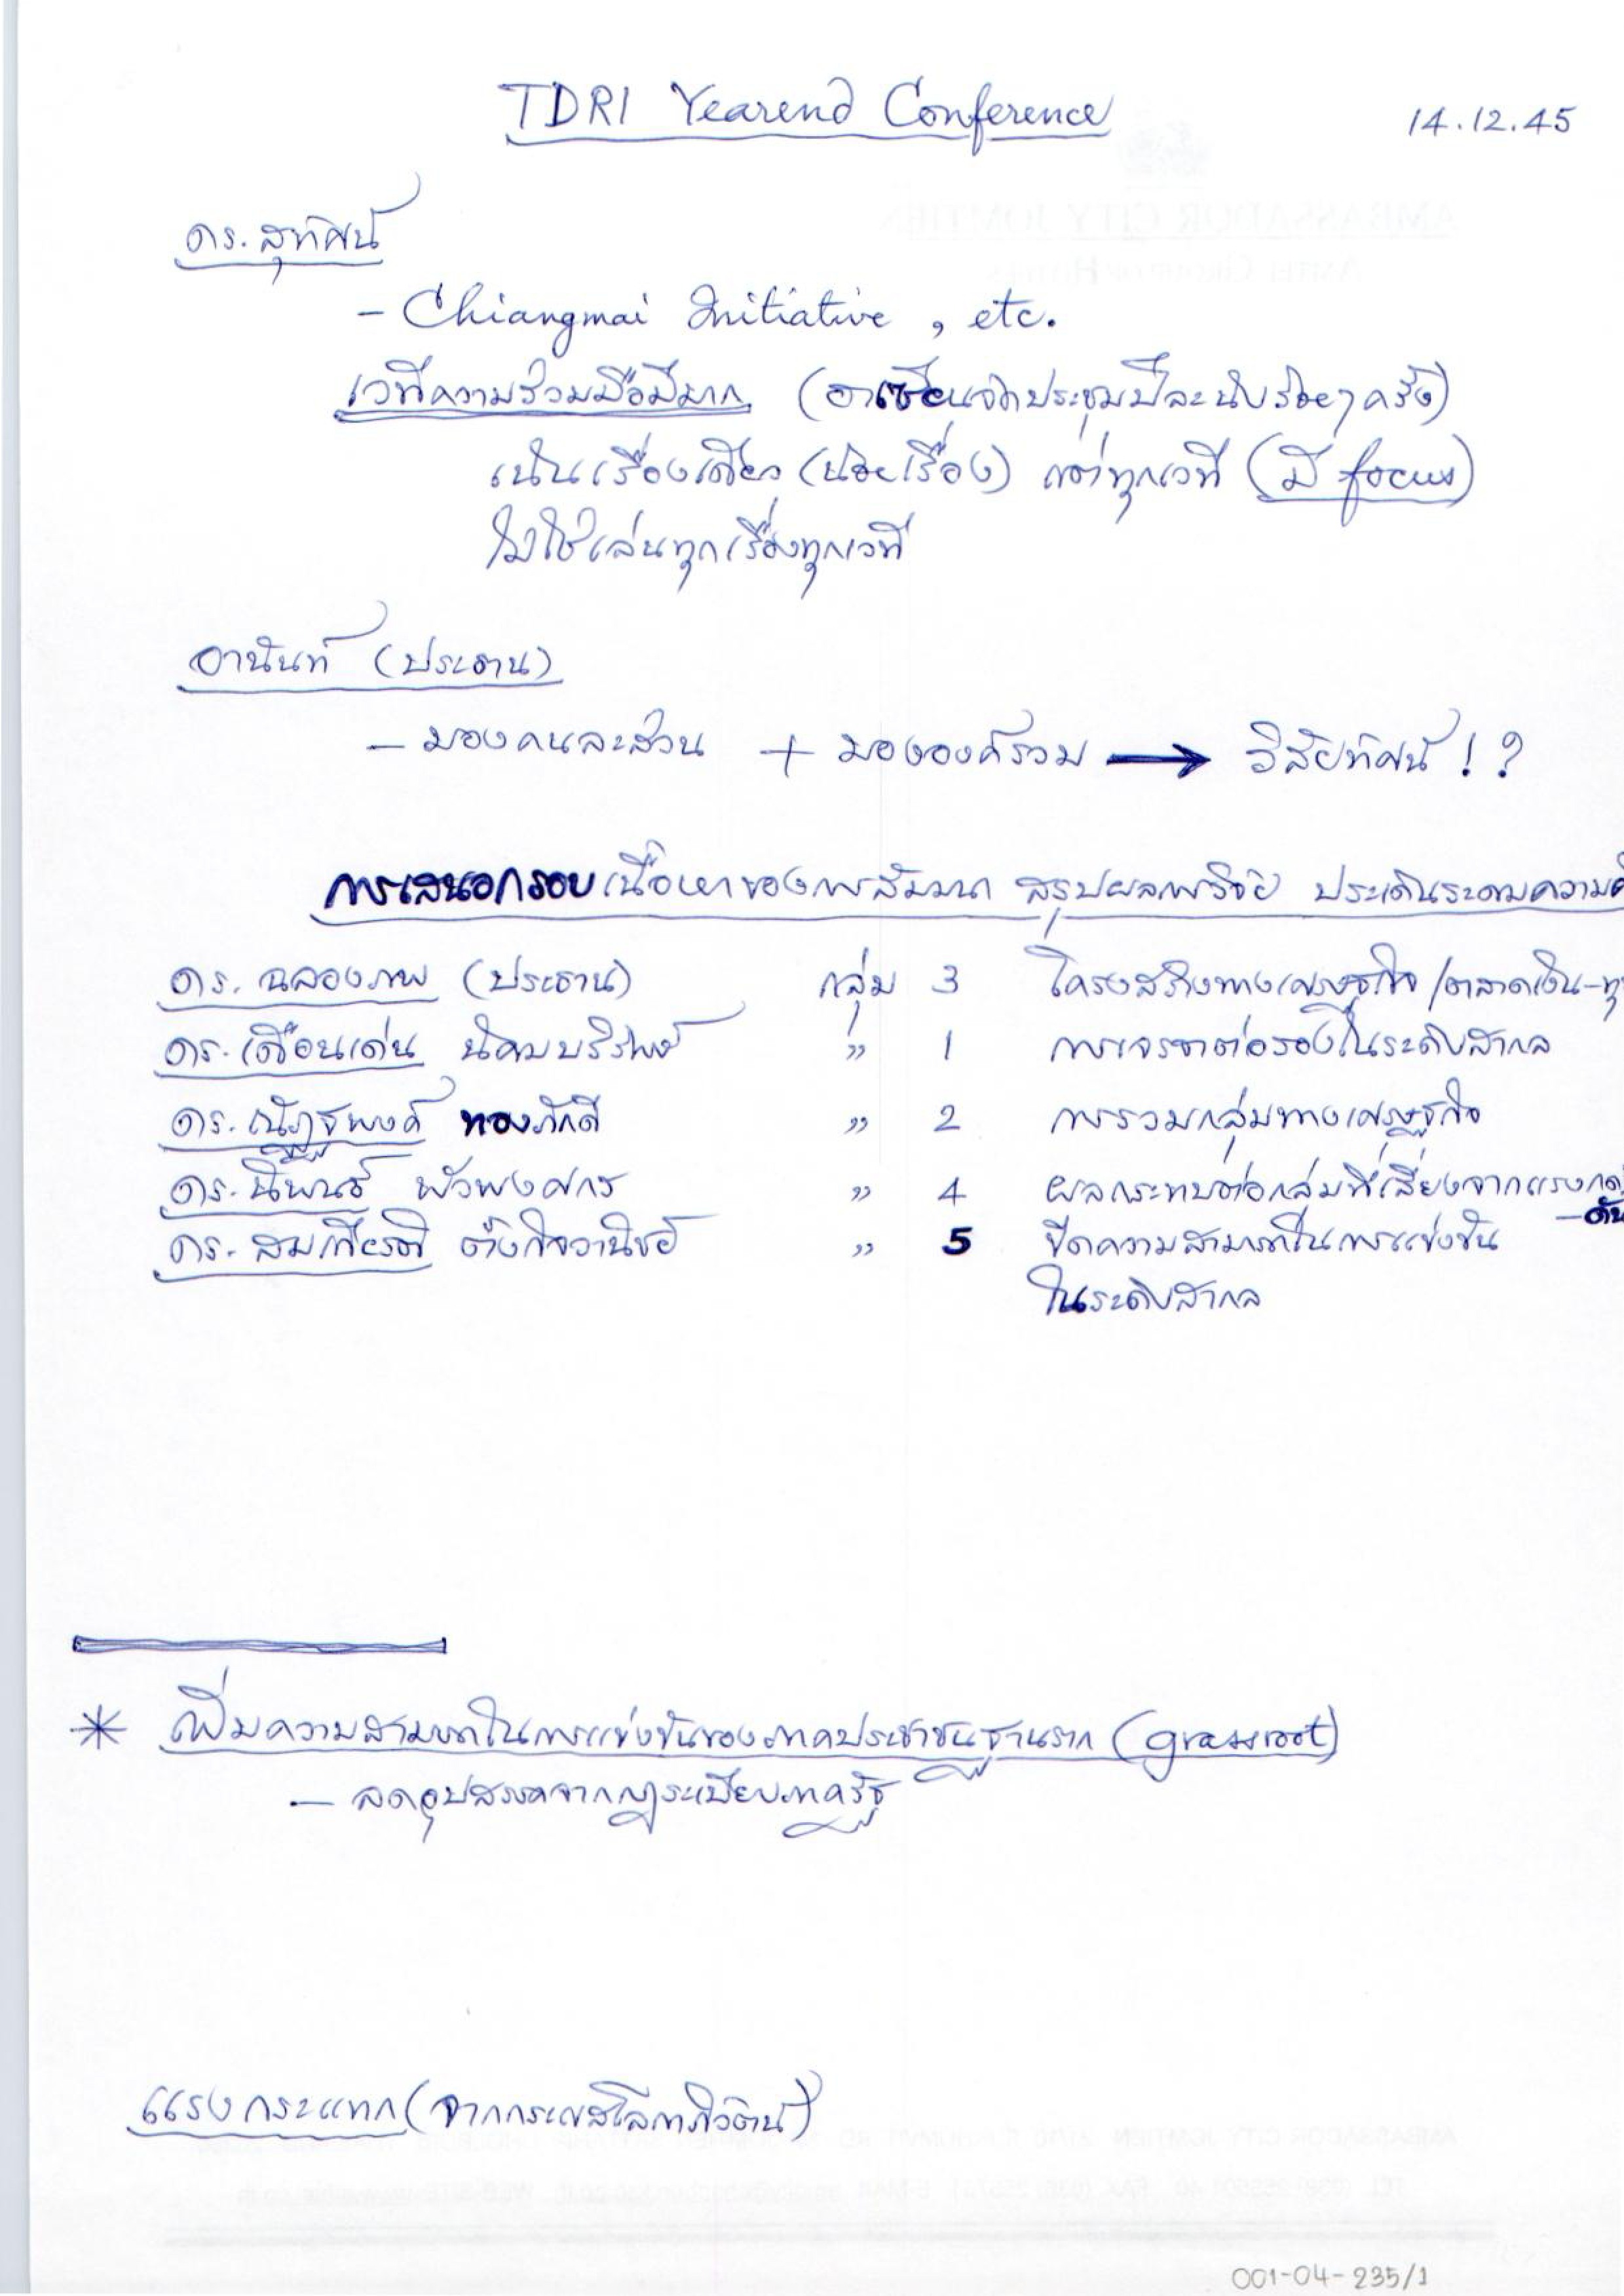 TDRI Yearend Conference
14.12.45
ดร. สุทัศน์
- Chiangmai Initiative , etc.
เวทีความร่วมมือมีมาก (อาเซียนจัดประชุมปีละนับร้อยๆ ครั้ง)
เน้นเรื่องเดียว (น้อยเรื่อง) แต่ทุกเวที (มี focus)
ไม่ใช่เล่นทุกเรื่องทุกเวที
อานันท์ (ประธาน)
- มองคนละส่วน + มององค์รวม → วิสัยทัศน์ ! ?
การเสนอกรอบเนื้อหาของการสัมมนา สรุปผลการวิจัย ประเด็นระดมความคิ
ดร. ฉลองภพ (ประธาน) กลุ่ม 3 โครงสร้างทางเศรษฐกิจ /ตลาดเงิน-ทุ
ดร. เดือนเด่น นิคมบริรักษ์ " 1 การเจรจาต่อรองในระดับสากล
ดร. ณัฏฐพงศ์ ทองภักดี " 2 การรวมกลุ่มทางเศรษฐกิจ
ดร. นิพนธ์ พัวพงศกร " 4 ผลกระทบต่อกลุ่มที่เสี่ยงจากแรงกด
ดร. สมเกียรติ ตั้งกิจวานิชย์ " 5 ขีดความสามารถในการแข่งขัน
ในระดับสากล
* เพิ่มความสามารถในการแข่งขันของภาคประชาชนฐานราก (grassroot)
- ลดอุปสรรคจากกฎระเบียบภาครัฐ
แรงกระแทก (จากกระแสโลกาภิวัตน์)
001-04-235/1